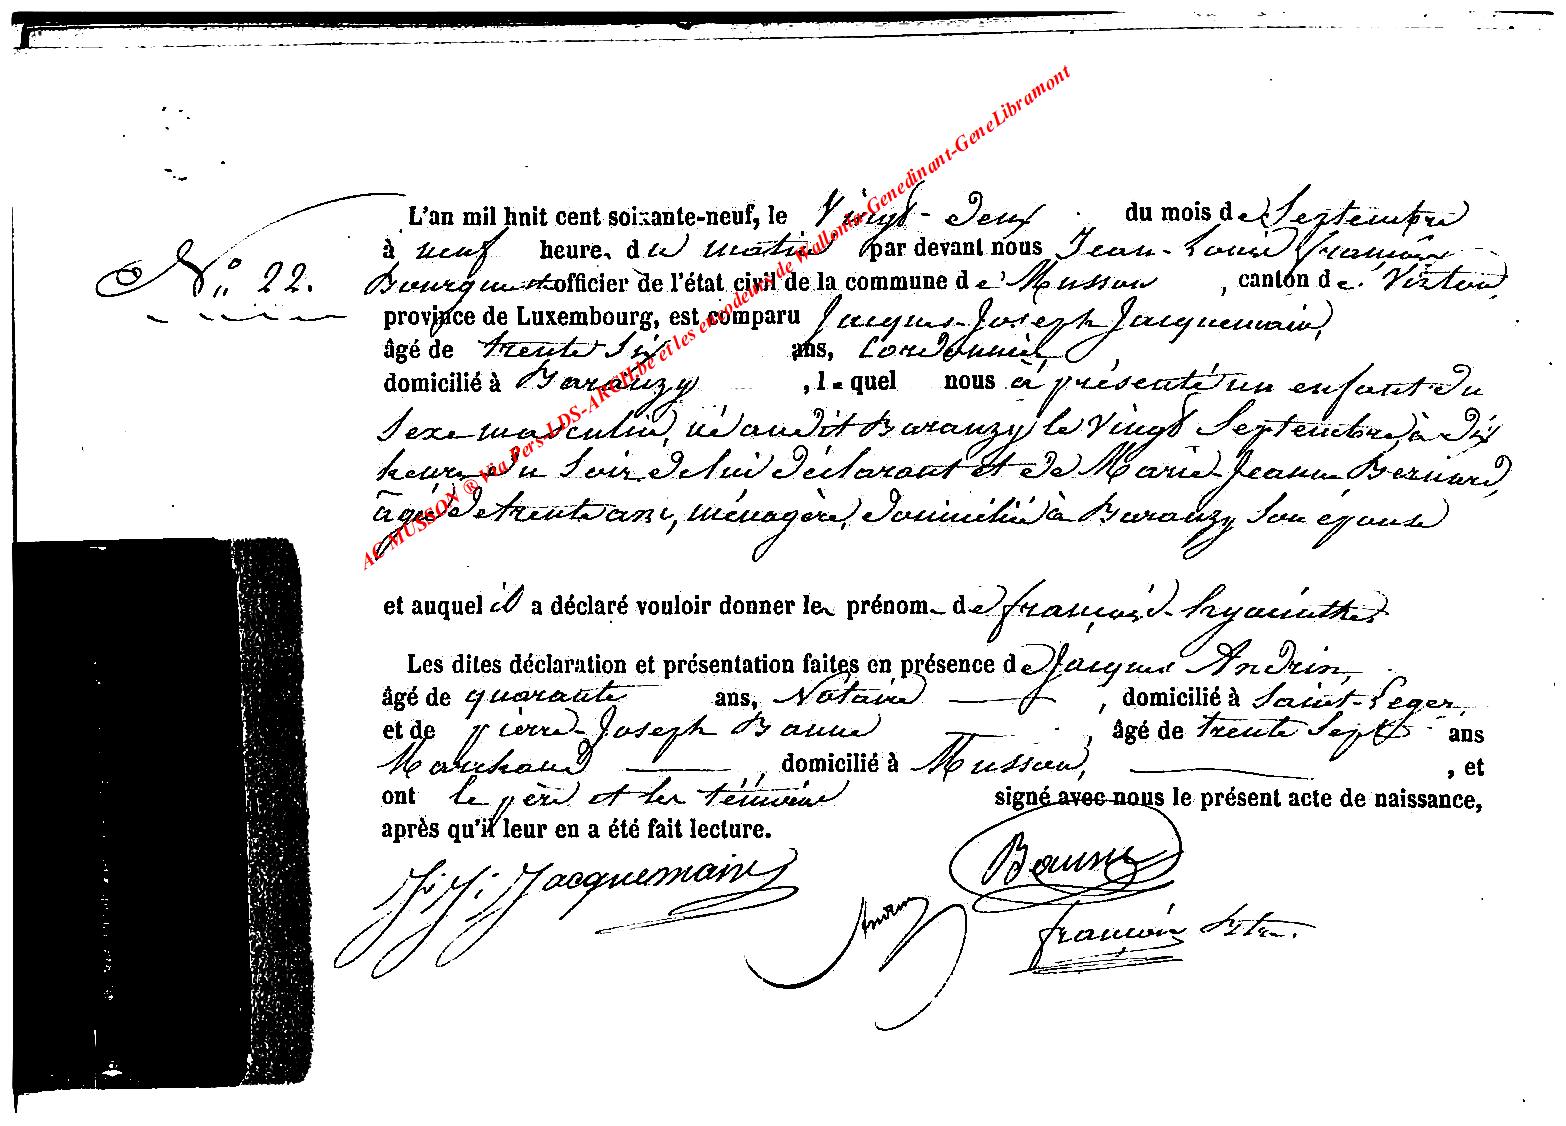 AC MUSSON ® Via Pers-LDS-ARCH.be et les encodeurs de Wallonia-Genedinant-GeneLibramont
L'an mil huit cent soixante-neuf, le Vingt-deux du mois de Septembre
N° 22.
à neuf heure du matin par devant nous Jean-Louis françois
officier de l'état civil de la commune de Musson, canton de Virton,
province de Luxembourg, est comparu Jacques-Joseph Jacquemain,
âgé de trente six ans, Cordonnier,
domicilié à Baranzy, lequel nous a présenté un enfant du
Sexe masculin, né audit Baranzy le Vingt Septembre à dix
heures du Soir de lui déclarant et de Marie-Jeanne Bernard,
âgée de trente ans, ménagère, domiciliée à Baranzy Son épouse
et auquel il a déclaré vouloir donner le prénom de françois-hyacinthe
Les dites déclaration et présentation faites en présence de Jacques Andrin,
âgé de quarante ans, Notaire, domicilié à Saint-Leger,
et de pierre-Joseph Baune, âgé de trente Sept ans
Marchand, domicilié à Musson, et
ont le père et les témoins signé avec nous le présent acte de naissance,
après qu'il leur en a été fait lecture.
J. J. Jacquemain
Baune
Andrin
françois